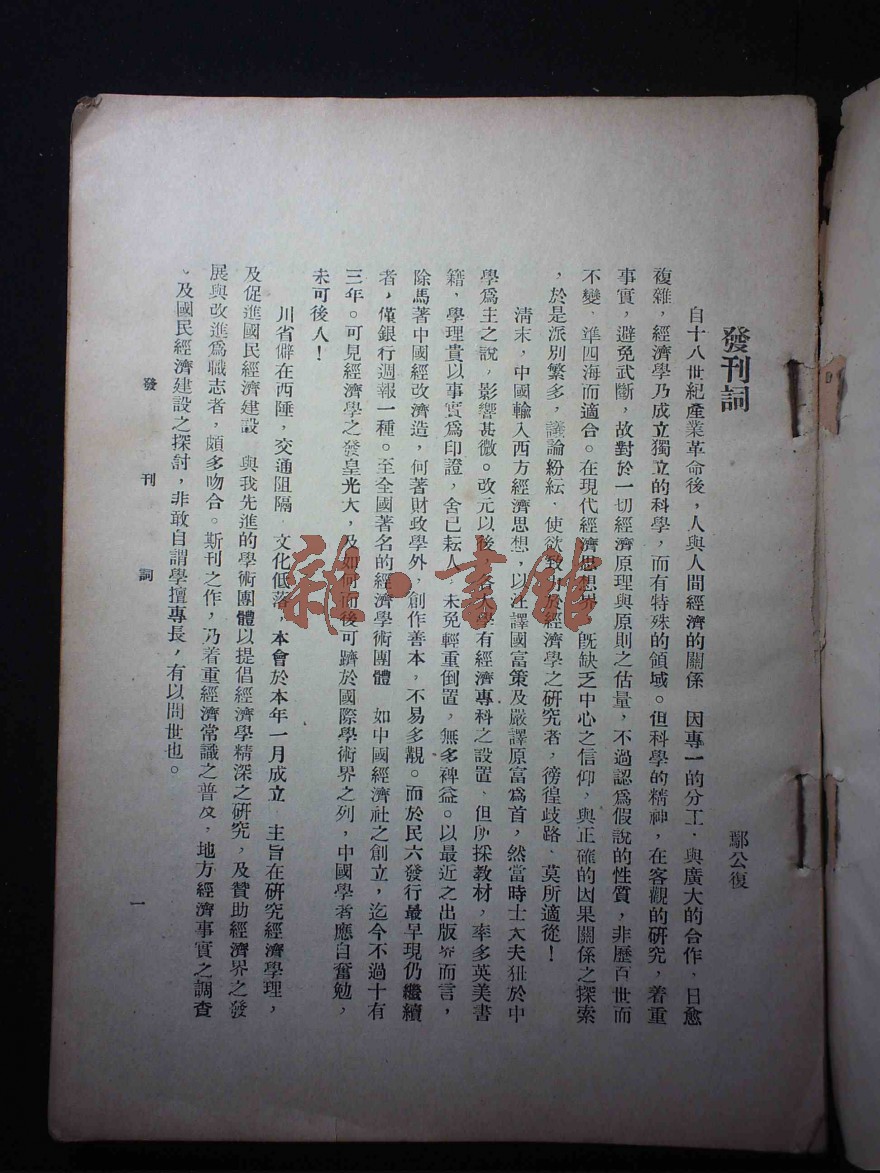 發刊詞
鄢公復
自十八世紀產業革命後，人與人間經濟的關係　因專一的分工．與廣大的合作、日愈
複雜，經濟學乃成立獨立的科學，而有特殊的領域。但科學的精神，在客觀的研究，着重
事實，避免武斷，故對於一切經濟原理與原則之估量，不過認爲假說的性質，非歷百世而
不變、準四海而適合。在現代經濟思想界，旣缺乏中心之信仰，與正確的因果關係之探索
，於是派別繁多，議論紛紜．使欲致力於經濟學之研究者，徬徨歧路、莫所適從！
清末，中國輸入西方經濟思想，以注譯國富策及嚴譯原富爲首，然當時士大夫狃於中
學爲主之說，影響甚微。改元以後，各大學有經濟專科之設置、但所採教材，率多英美書
籍，學理貴以事實爲印證，舍己耘人，未免輕重倒置，無多裨益。以最近之出版界而言，
除馬著中國經改濟造，何著財政學外，創作善本，不易多覯。而於民六發行最早現仍繼續
者，僅銀行週報一種。至全國著名的經濟學術團體　如中國經濟社之創立，迄今不過十有
三年。可見經濟學之發皇光大，及如何而後可躋於國際學術界之列，中國學者應自奮勉，
未可後人！
川省僻在西陲，交通阻隔　文化低落，本會於本年一月成立　主旨在硏究經濟學理，
及促進國民經濟建設　與我先進的學術團體以提倡經濟學精深之硏究，及贊助經濟界之發
展與改進爲職志者，頗多吻合。斯刊之作，乃着重經濟常識之普及、地方經濟事實之調查
、及國民經濟建設之探討，非敢自謂學擅專長，有以問世也。
發刊詞
一
雜·書館